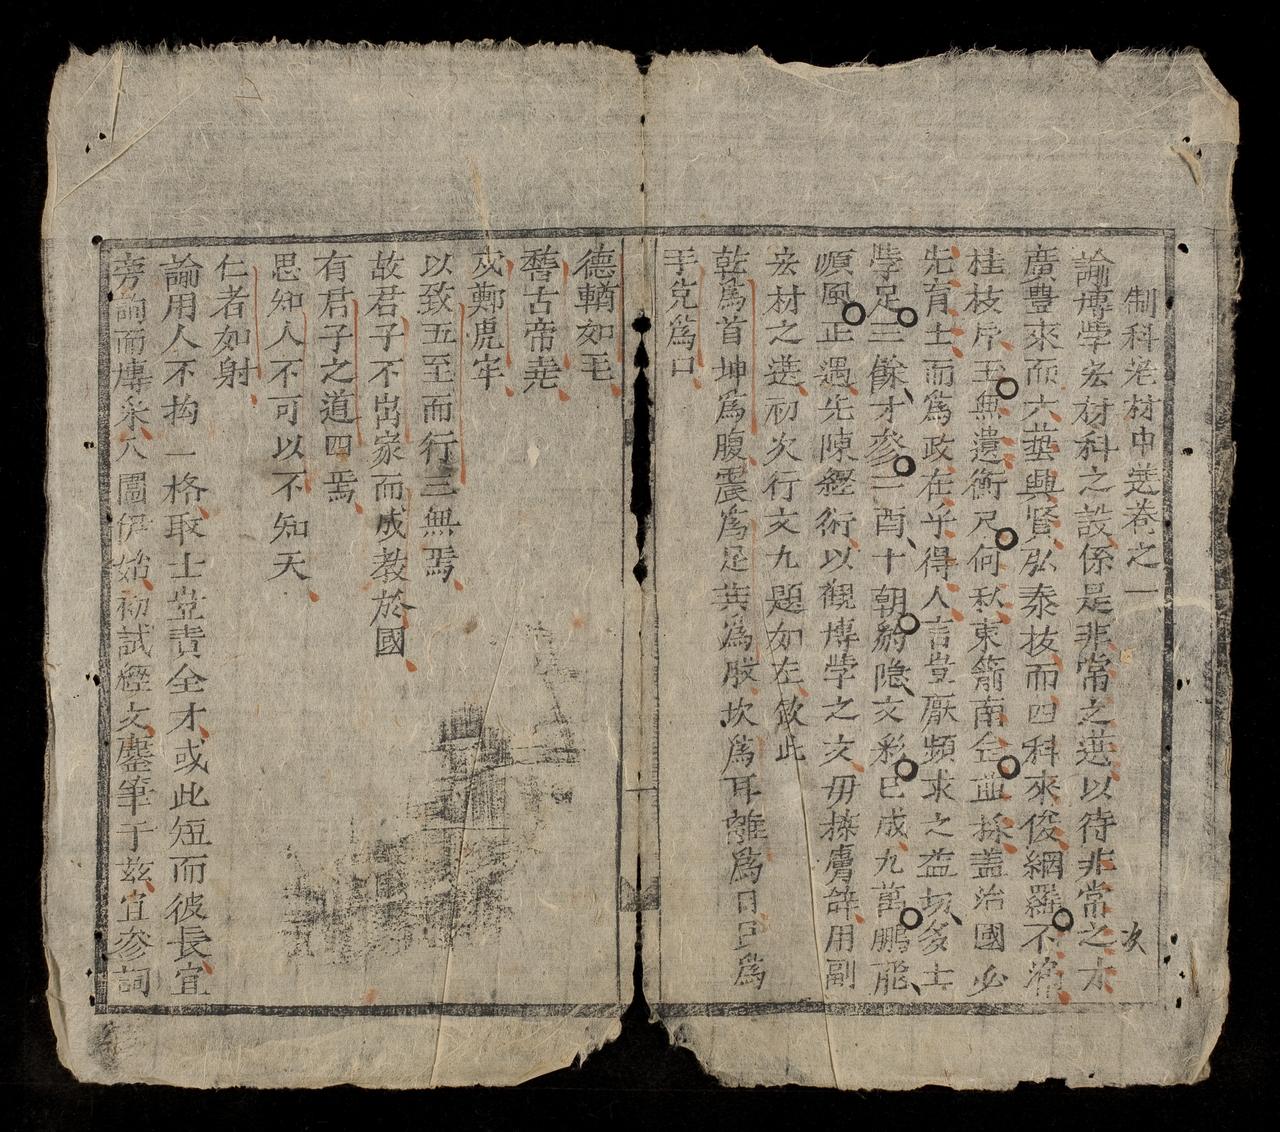 制科宏材中選卷之一
論博學宏材科之設係是非常之選以待非常之才
廣豊來而六藝興賢弘泰拔而四科來俊網羅不漏
桂枝片玉無遺衡尺何私東箭南金並採盖治國必
先有士而爲政在乎得人言豈厭頻求之益切多士
學足三餘才參二酉十朝豹隐文彩已成九萬鵬飛
順風正遇先陳經術以觀博學之文毋撡膚辞用副
宏材之選初次行文九題如左欽此
乾爲首坤爲腹震爲足巽爲股坎爲耳離爲目艮爲
手兌爲口
德輶如毛
𥡴古帝堯
戍鄭虎牢
以致五至而行三無焉
故君子不出家而成教於國
有君子之道四焉
思知人不可以不知天
仁者如射
論用人不拘一格取士豈責全才或此短而彼長宜
旁論而慱采八圍伊始初試經文鏖筆于兹宜參詞
次